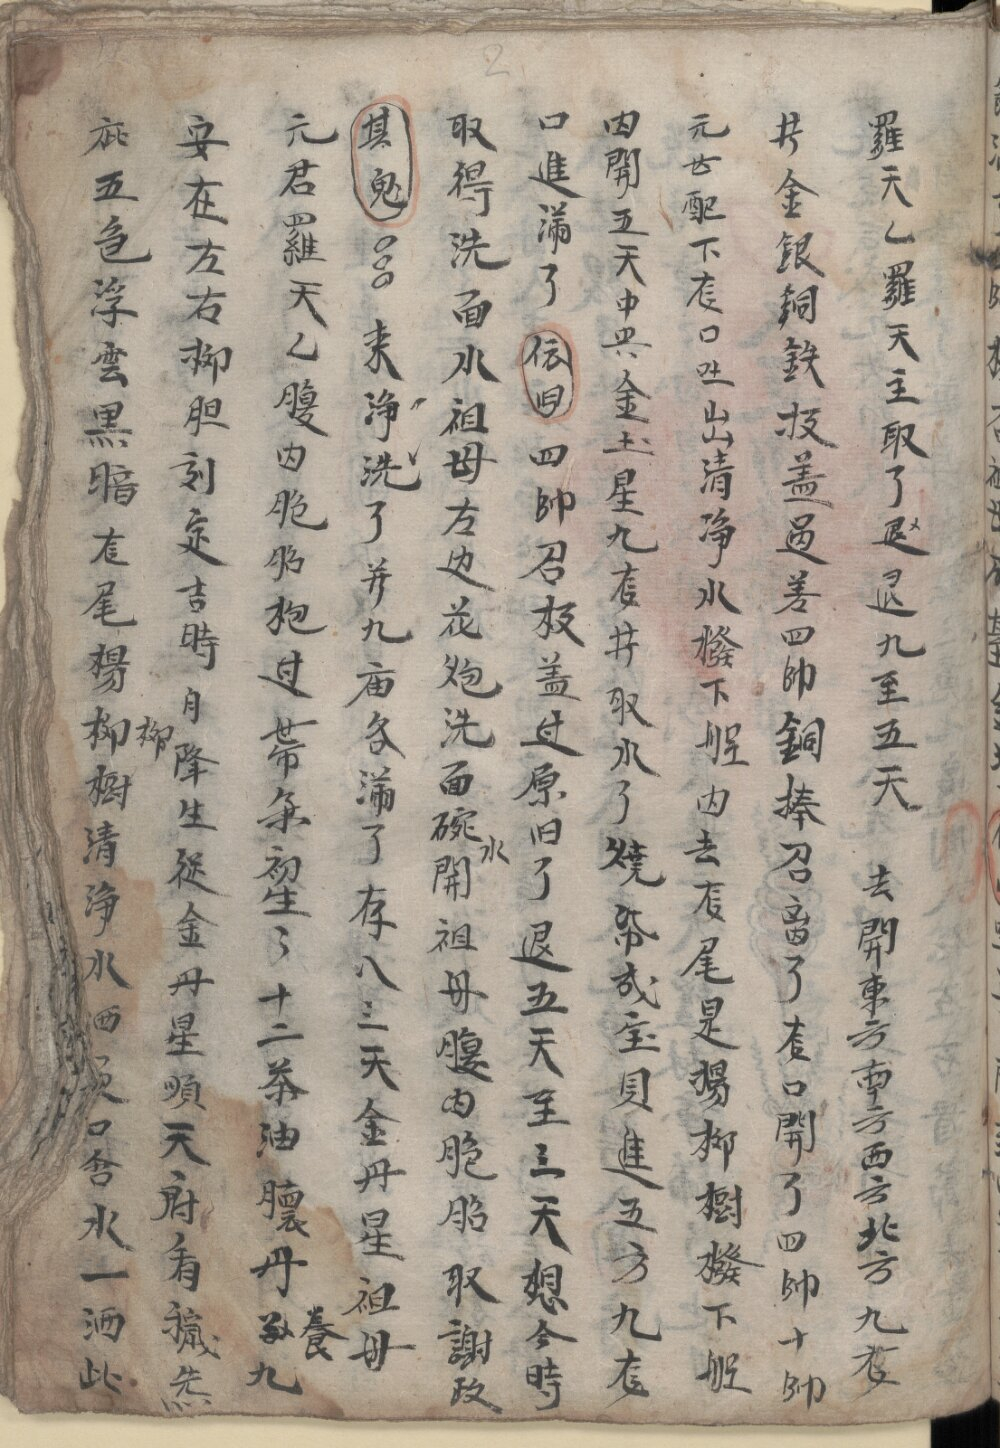 羅天乙羅天主取了退退九至五天 去開東方南方西方北方九龙
井金銀銅鉄技蓋過差四帥銅捧召畜了龙口開了四帥十帥
元甘配下龙口吐出清净水撥下 内去龙尾是楊柳樹撥下
内開五天中央金土星九龙井取水了燒幣成宝貝進五方九龙
口進滿了依旧四帥召板蓋过原旧了退五天至三天想今時
取得洗面水祖母左边花炮洗面碗水開祖母腹内胞胎取謝政
其鬼 来净洗了并九庙各滿了存八三天金丹星祖母
元君羅天乙腹内胞胎枹过 条初生了十二茶油 丹養九
安在左右柳胆刻定吉時月降生從金丹星順天府看
庇五色浮雲黑暗龙尾楊柳柳樹清净水洒 口含水一洒此